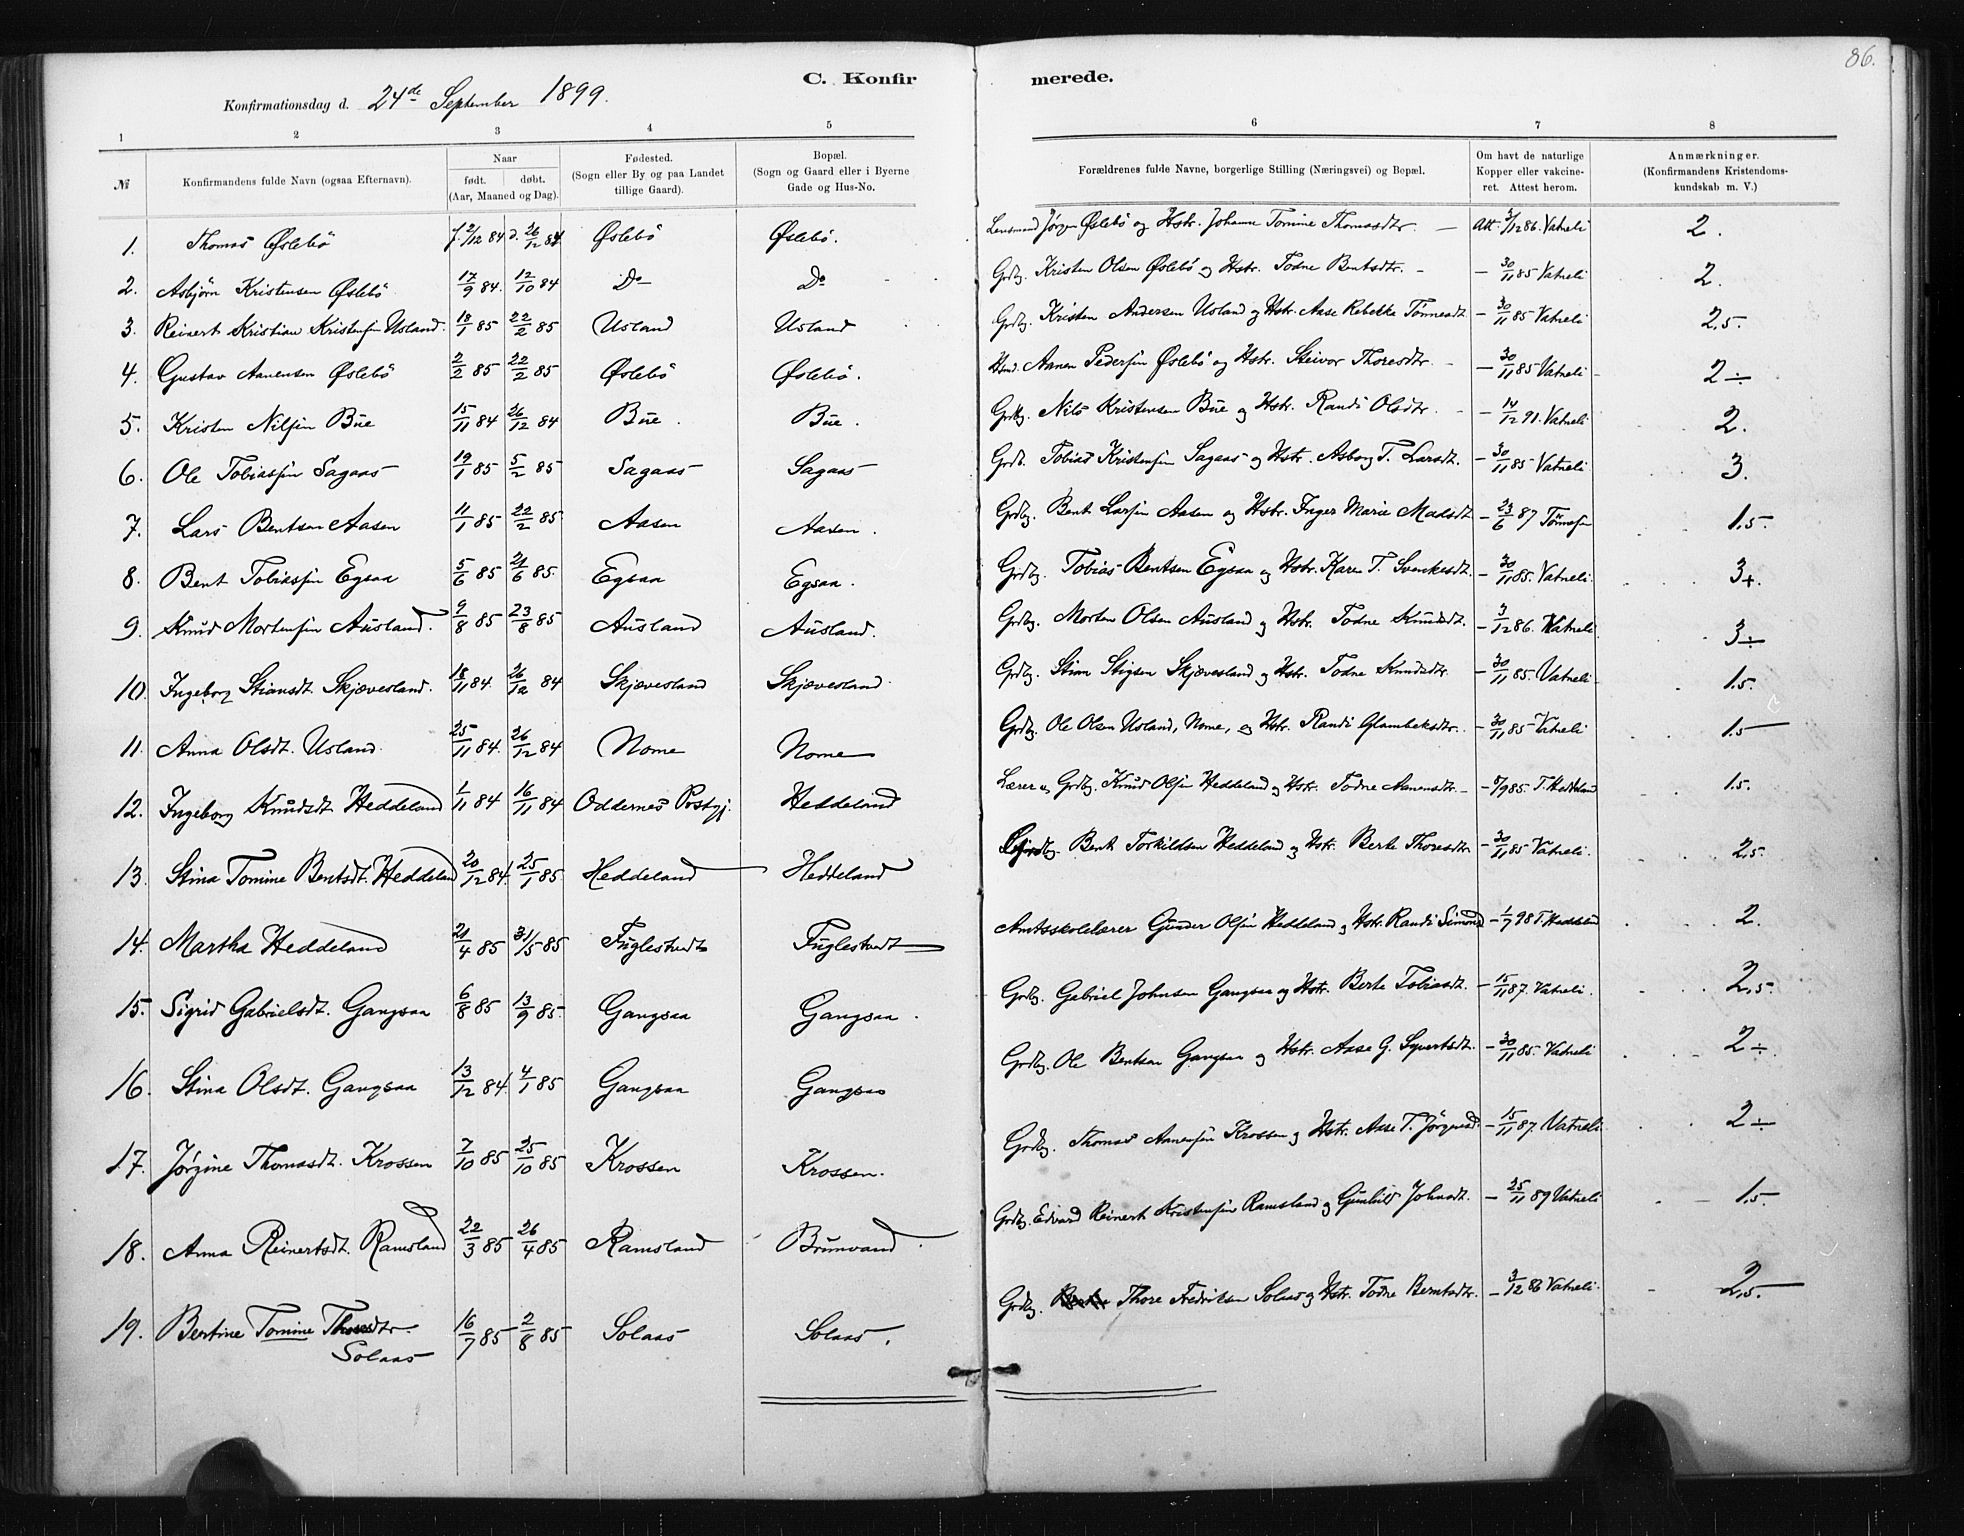 86.
C. Konfirmerede.
Konfirmationsdag d. 24de September 1899.
1 2 3 4 5 6 7 8
№ Konfirmandens fulde Navn (ogsaa Efternavn). Naar født. døbt. (Aar, Maaned og Dag). Fødested. (Sogn eller By og paa Landet tillige Gaard). Bopæl. (Sogn og Gaard eller i Byerne Gade og Hus-No. Forældrenes fulde Navne, borgerlige Stilling (Næringsvei) og Bopæl. Om havt de naturlige Kopper eller vakcineret. Attest herom. Anmærkninger. (Konfirmandens Kristendomskundskab m. V.)
1. Thomas Øslebö f. 2/12 84 d. 26/12 84 Øslebö Øslebö. Lensmand Jörgen Øslebö og Hstr. Johanne Tomine Thomasdtr. — Att. 3/12 86. Vatneli 2.
2. Asbjörn Kristensen Øslebö 17/9 84. 12/10 84 Do Do Grdbg. Kristen Olsen Øslebö og Hstr. Todne Bentsdtr. – — 30/11 85 Vatneli 2.
3. Reinert Kristian Kristensen Usland. 18/1 85 22/2 85 Usland Usland Grdbg. Kristen Andersen Usland og Hstr. Aase Rebekke Tönnesdt — 30/11 85 Vatneli 2,5.
4. Gustav Aanensen Øslebö 2/2 85 22/2 85 Øslebö Øslebö. Hsmd. Aanen Pedersen Øslebö og Hstr. Steivor Thoresdtr. — 30/11 85 Vatneli 2 ÷
5. Kristen Nilsen Bue 15/11 84 26/12 84 Bue. Bue. Grdbg. Nils Kristensen Bue og Hstr. Randi Olsdtr. — 14/12 91. Vatneli 2.
6. Ole Tobiassen Sagaas 19/1 85 5/2 85 Sagaas Sagaas Grdb. Tobias Kristensen Sagaas og Hstr. Asborg T. Larsdt. — 30/11 85 Vatneli 3.
7. Lars Bentsen Aasen 11/1 85 22/2 85 Aasen Aasen. Grdbg. Bent Larsen Aasen og Hstr. Inger Marie Madsdt — 23/6 87 Tönnesen 1.5.
8. Bent Tobiassen Egsaa 5/6 85 21/6 85. Egsaa Egsaa. Grdbg. Tobias Bentsen Egsaa og Hstr. Karen T. Svenkesdt. — 30/11 85. Vatneli 3+.
9. Knud Mortensen Ausland. 9/8 85 23/8 85 Ausland Ausland. Grdbg. Morten Olsen Ausland og Hstr. Todne Knudsdt. — 3/12 86. Vatneli 3 ÷
10. Ingeborg Stiansdt. Skjævesland. 18/11 84. 26/12 84 Skjævesland Skjævesland. Grdbg. Stian Stigsen Skjævesland og Hstr. Todne Knudsdtr. — 30/11 85. Vatneli 1.5.
11. Anna Olsdt. Usland. 25/11 84. 26/12 84 Nome Nome Grdbg. Ole Olsen Usland, Nome, og Hstr. Randi Glambeksdtr. — 30/11 85 Vatneli 1.5
12. Ingeborg Knudsdt. Heddeland 1/11 84 16/11 84 Oddernes Prstgj. Heddeland Lærer og Grdbg. Knud Olsen Heddeland og Hstr. Todne Aanensdtr. — 85 T. Heddeland 1.5.
13. Stina Tomine Bentsdt. Heddeland 20/12 84. 25/1 85 Heddeland Heddeland Grdbg. Bent Torkildsen Heddeland og Hstr. Berte Thoresdtr — 30/11 85 Vatneli. 2,5.
14. Martha Heddeland 21/4 85 31/5 85 Fuglestvedt Fuglestvedt Amtsskolelærer Gunder Olsen Heddeland og Hstr. Randi Simonsd — 1/7 98 T. Heddeland 2.
15. Sigrid Gabrielsdt. Gangsaa 6/8 85 13/9 85. Gangsaa Gangsaa. Grdbg. Gabriel Johnsen Gangsaa og Hstr. Berte Tobiasdt. — 15/11 87. Vatneli. 2,5.
16. Stina Olsdt. Gangsaa 13/12 84. 4/1 85 Gangsaa Gangsaa Grdbg. Ole Bentsen Gangsaa og Hstr. Aase G. Syvertsdt. — 30/11 85. Vatneli 2 ÷.
17. Jörgine Thomasdt. Krossen 7/10 85 25/10 85 Krossen Krossen. Grdbg. Thomas Aanensen Krossen og Hstr. Aase T. Jörgensd. — 15/11 87. Vatneli 2 ÷
18. Anna Reinertsdt. Ramsland 22/3 85 26/4 85 Ramsland Brunvand. Grdbg. Edvard Reinert Kristensen Ramsland og Gunhild Johnsdt. — 25/11 89 Vatneli 1.5
19. Bertine Tomine Thoresdtr. Solaas 16/7 85 2/8 85 Solaas Solaas. Grdbg. Thore Fredriksen Solaas og Hstr. Todne Berntsdtr. — 3/12 86 Vatneli. 2,5.